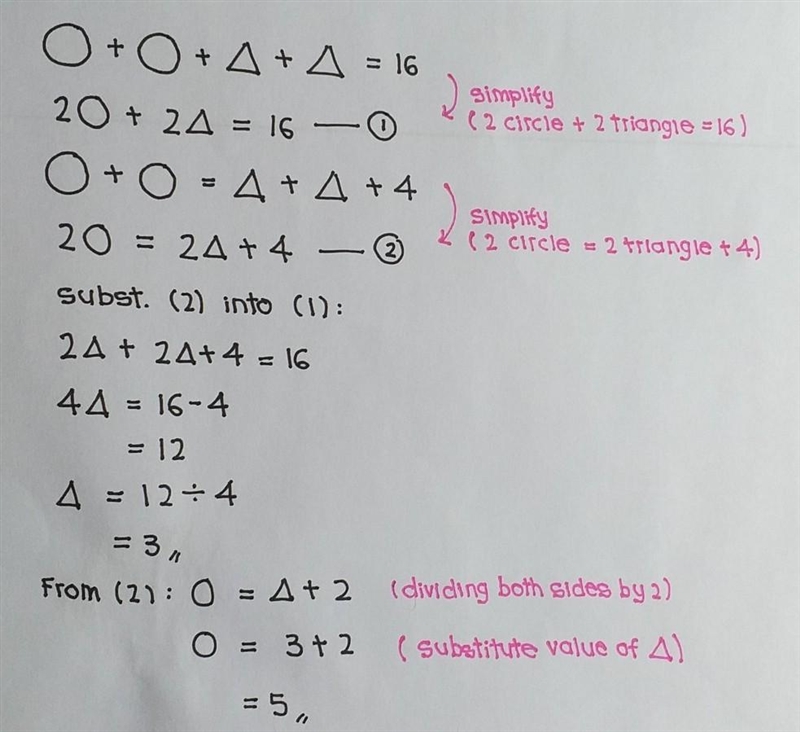 ○ + ○ + △ + △ = 16
simplify
2○ + 2△ = 16 — ①
(2 circle + 2 triangle = 16)
○ + ○ = △ + △ + 4
simplify
2○ = 2△ + 4 — ②
(2 circle = 2 triangle + 4)
subst. (2) into (1):
2△ + 2△ + 4 = 16
4△ = 16 - 4
= 12
△ = 12 ÷ 4
= 3 〃
From (2): ○ = △ + 2 (dividing both sides by 2)
○ = 3 + 2 (substitute value of △)
= 5 〃